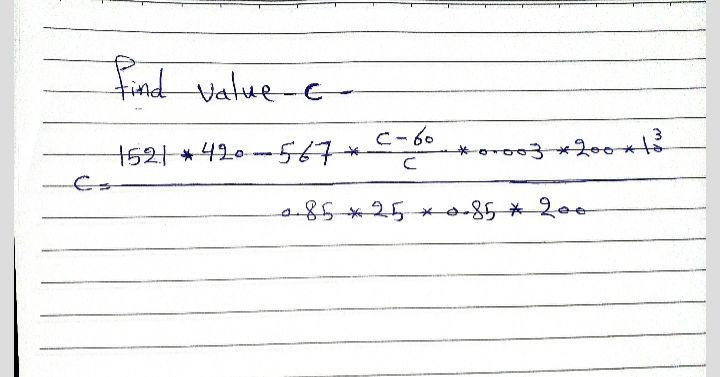 find value - c -
c = (1521 * 420 - 567 * (c-60)/c * 0.003 * 200 * 10³) / (0.85 * 25 * 0.85 * 200)